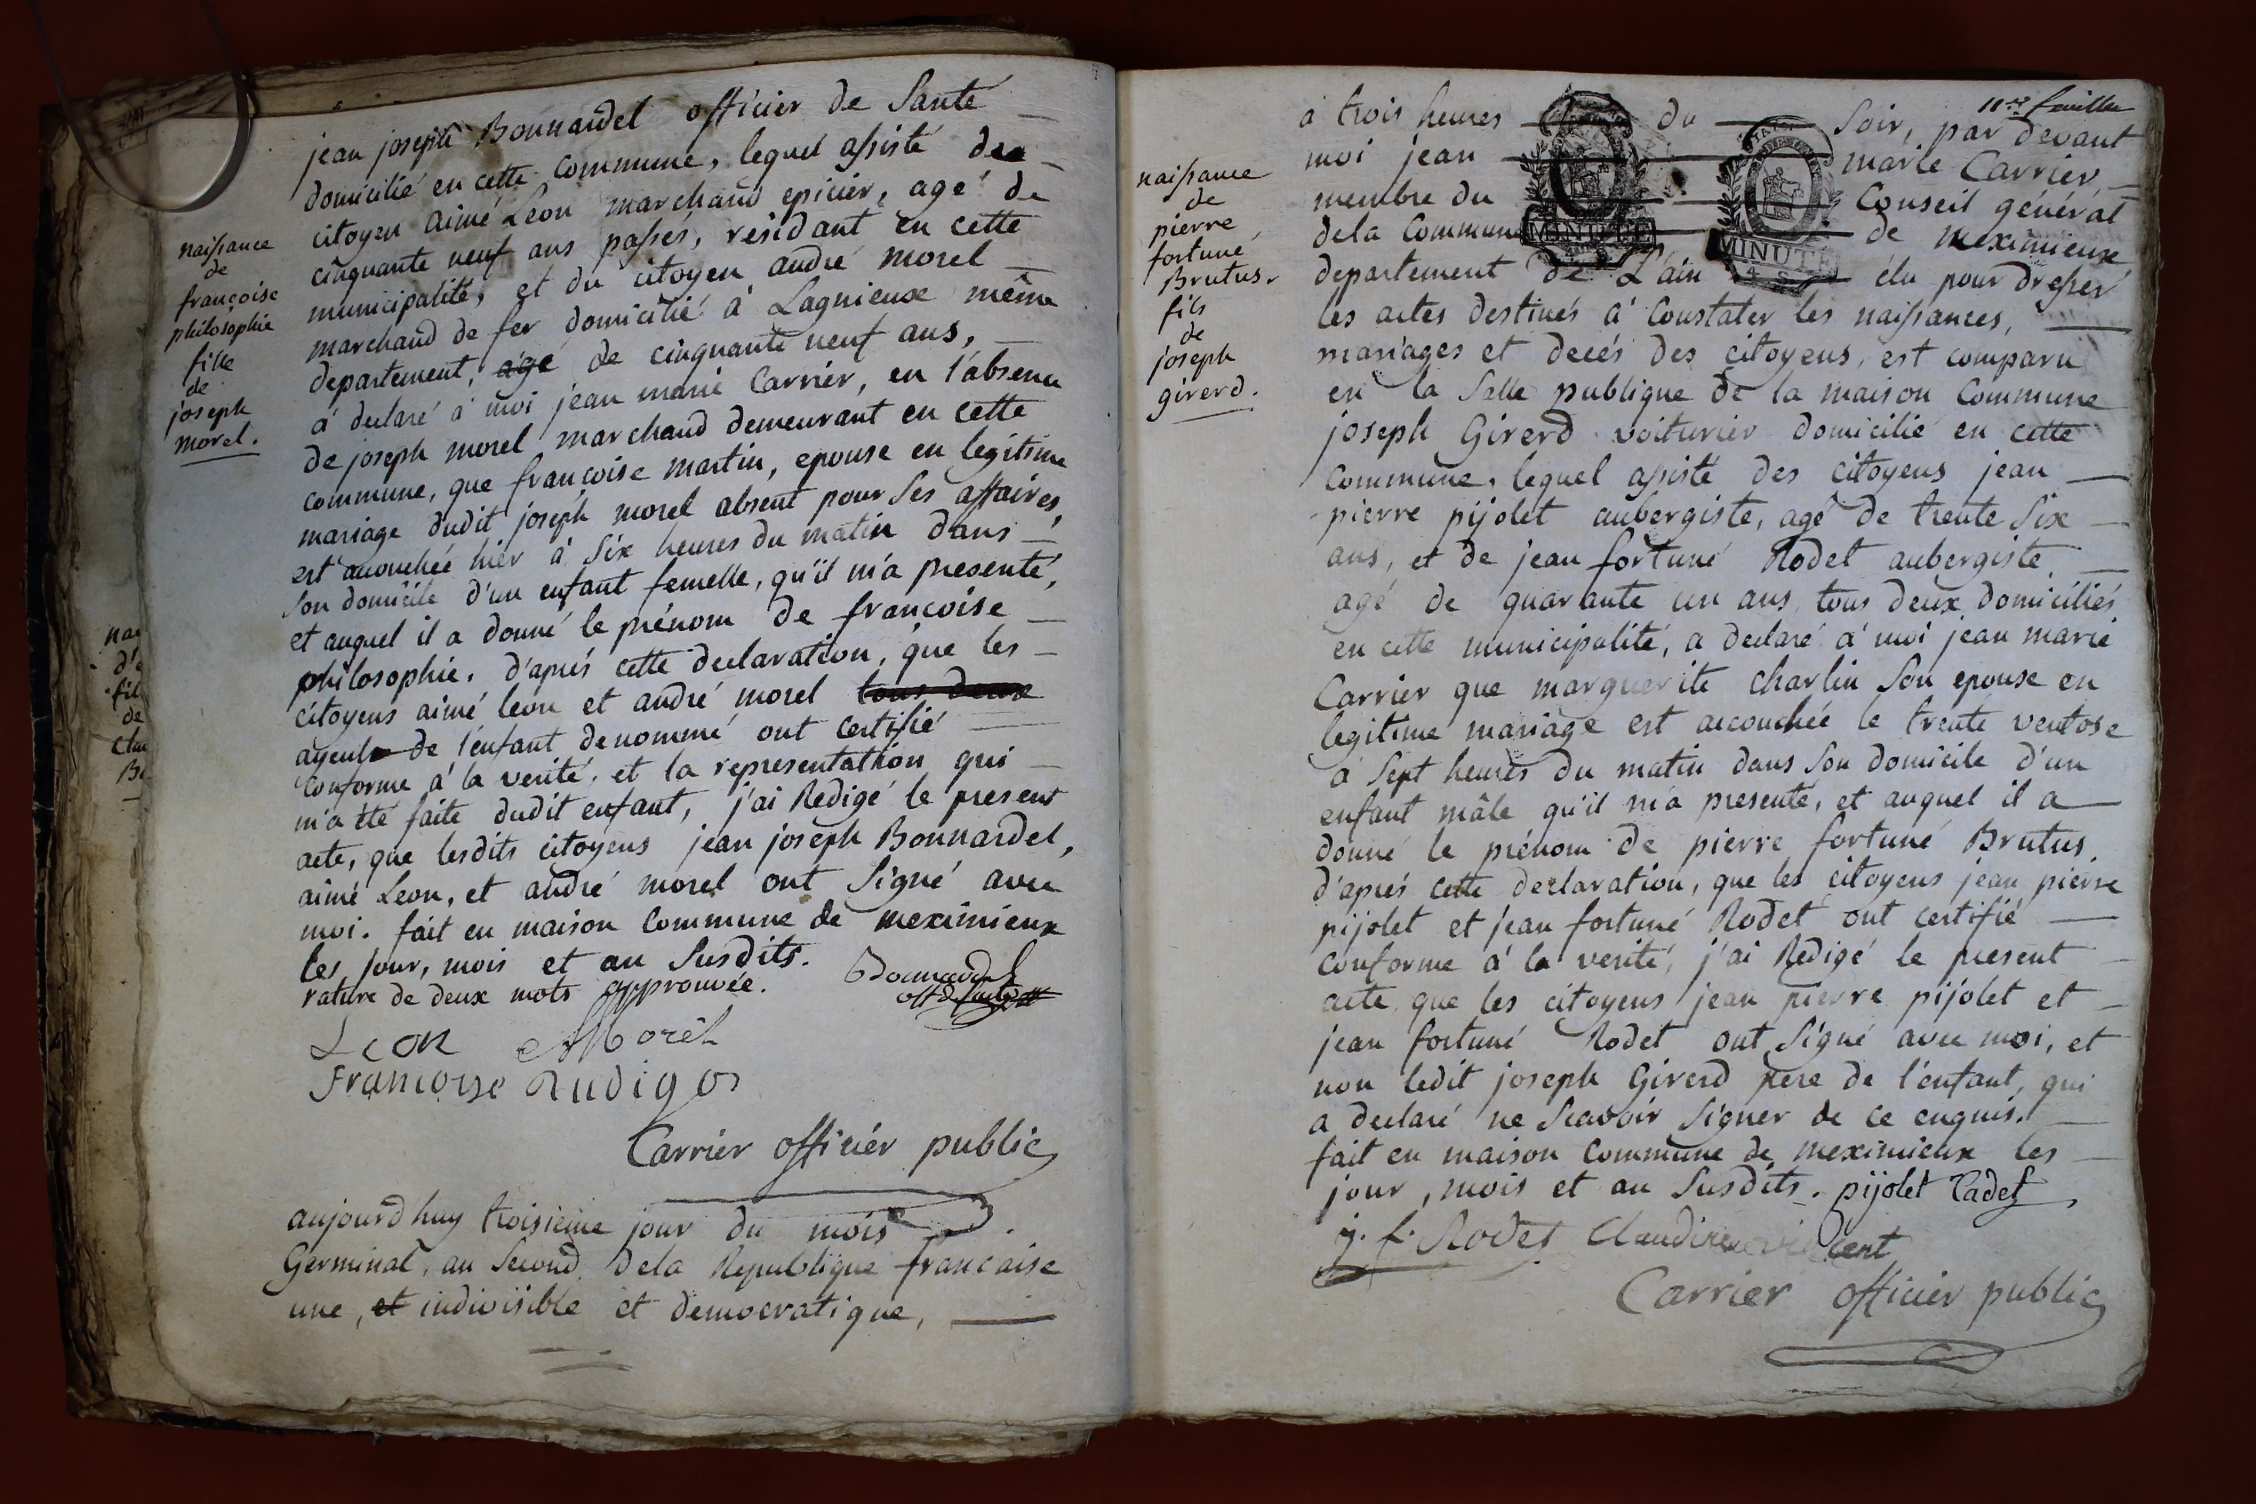 naissance
de
françoise
philosophie
fille
de
joseph
morel.
jean joseph Bonnardel officier de Santé
domicilié en cette commune, lequel assisté du
citoyen aimé Leon marchand epicier, agé de
cinquante neuf ans passés, residant en cette
municipalité, et du citoyen andré morel
marchand de fer domicilié à Lagnieux même
departement, agé de cinquante neuf ans,
à declaré à moi jean marie Carrier, en l'absence
de joseph morel marchand demeurant en cette
commune, que françoise martin, epouse en legitime
mariage dudit joseph morel absent pour Ses affaires,
est accouchée hier à Six heures du matin dans
Son domicile d'un enfant femelle, qu'il m'a presenté,
et auquel il a donné le prénom de françoise
philosophie. d'aprés cette declaration, que les
citoyens aimé leon et andré morel tous deux
ayeuls de l'enfant denommé ont certifié
conforme à la verité, et la representation qui
m'a été faite dudit enfant, j'ai Redigé le present
acte, que lesdits citoyens jean joseph Bonnardel,
aimé Leon, et andré morel ont Signé avec
moi. fait en maison Commune de meximieux
les jour, mois et an Susdits.
rature de deux mots approuvée.
Bonnardel
off de santé
Leon AMorel
Francoise Rudigos
Carrier officier public
aujourd'huy troisieme jour du mois
Germinal, an Second dela Republique francaise
une, et indivisible et democratique,
11me feuillet
naissance
de
pierre
fortuné
Brutus
fils
de
joseph
girerd.
à trois heures du Soir, par devant
moi jean marie Carrier
membre du Conseil général
dela Commune de meximieux
departement de L'ain élu pour dresser
MINUTE
MINUTE
4 S
les actes destinés à Constater les naissances,
mariages et decés des citoyens, est comparu
en la Salle publique de la maison Commune
joseph Girerd voiturier domicilié en cette
Commune, lequel assisté des citoyens jean
pierre pijolet aubergiste, agé de trente Six
ans, et de jean fortuné Rodet aubergiste
agé de quarante un ans, tous deux domiciliés
en cette municipalité, a declaré à moi jean marie
Carrier que marguerite charlin Son epouse en
legitime mariage est accouchée le trente ventose
à Sept heures du matin dans Son domicile d'un
enfant mâle qu'il m'a presenté, et auquel il a
donné le prénom de pierre fortuné Brutus.
d'aprés cette declaration, que les citoyens jean pierre
pijolet et jean fortuné Rodet ont certifié
conforme à la verité, j'ai Redigé le present
acte que les citoyens jean pierre pijolet et
jean fortuné Rodet ont Signé avec moi, et
non ledit joseph Girerd pere de l'enfant, qui
a declaré ne Scavoir Signer de ce enquis.
fait en maison Commune de meximieux les
jour, mois et an Susdits. pijolet Cadet
j. f. Rodet Claudine vincent
Carrier officier public